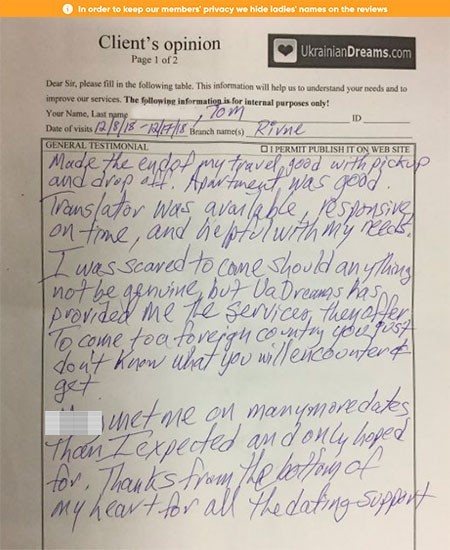 In order to keep our members' privacy we hide ladies' names on the reviews
Client's opinion
Page 1 of 2
UkrainianDreams.com
Dear Sir, please fill in the following table. This information will help us to understand your needs and to
improve our services. The following information is for internal purposes only!
Your Name, Last name , Tom ID
Date of visits 12/8/18 - 12/17/18 Branch name(s) Rivne
GENERAL TESTIMONIAL ☐ I PERMIT PUBLISH IT ON WEB SITE
Made the end of my travel good with pickup
and drop off. Apartment was good.
Translator was available, responsive,
on time, and helpful with my needs.
I was scared to come should anything
not be genuine, but UaDreams has
provided me the services they offer.
To come to a foreign country you just
don't know what you will encounter &
get.
met me on many more dates
than I expected and only hoped
for. Thanks from the bottom of
my heart for all the dating support